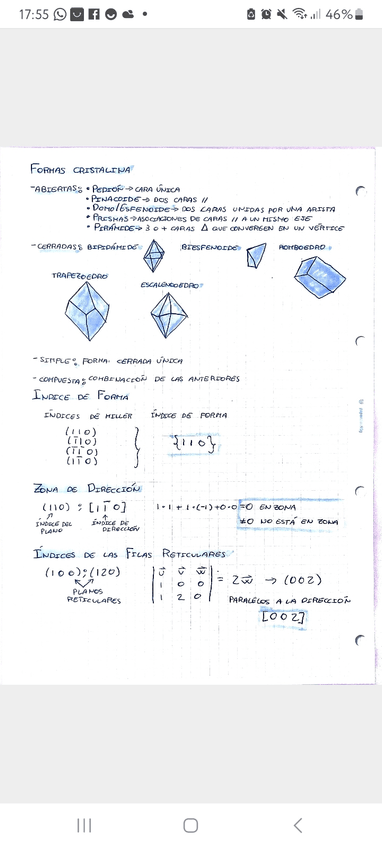 17:55 46%
FORMAS CRISTALINA
-ABIERTAS: • PEDIÓN → CARA ÚNICA
• PINACOIDE → DOS CARAS //
• DOMO/ESFENOIDE → DOS CARAS UNIDAS POR UNA ARISTA
• PRISMAS → ASOCIACIONES DE CARAS // A UN MISMO EJE
• PIRÁMIDE → 3 O + CARAS Δ QUE CONVERGEN EN UN VÉRTICE
-CERRADAS: BIPIRÁMIDE BIESFENOIDE ROMBOEDRO
TRAPEZOEDRO
ESCALENOEDRO
-SIMPLE: FORMA CERRADA ÚNICA
-COMPUESTA: COMBINACIÓN DE LAS ANTERIORES
ÍNDICE DE FORMA
ÍNDICES DE MILLER ÍNDICE DE FORMA
(110)
(1̄10)
(1̄1̄0)
(11̄0)
{110}
ZONA DE DIRECCIÓN
(110) : [11̄0] 1·1 + 1·(-1) + 0·0 =0 EN ZONA
≠0 NO ESTÁ EN ZONA
ÍNDICE DEL PLANO
ÍNDICE DE DIRECCIÓN
ÍNDICES DE LAS FILAS RETICULARES
(100):(120)
PLANOS RETICULARES
|u⃗ v⃗ w⃗|
|1 0 0| = 2w⃗ → (002)
|1 2 0|
PARALELOS A LA DIRECCIÓN
[002]